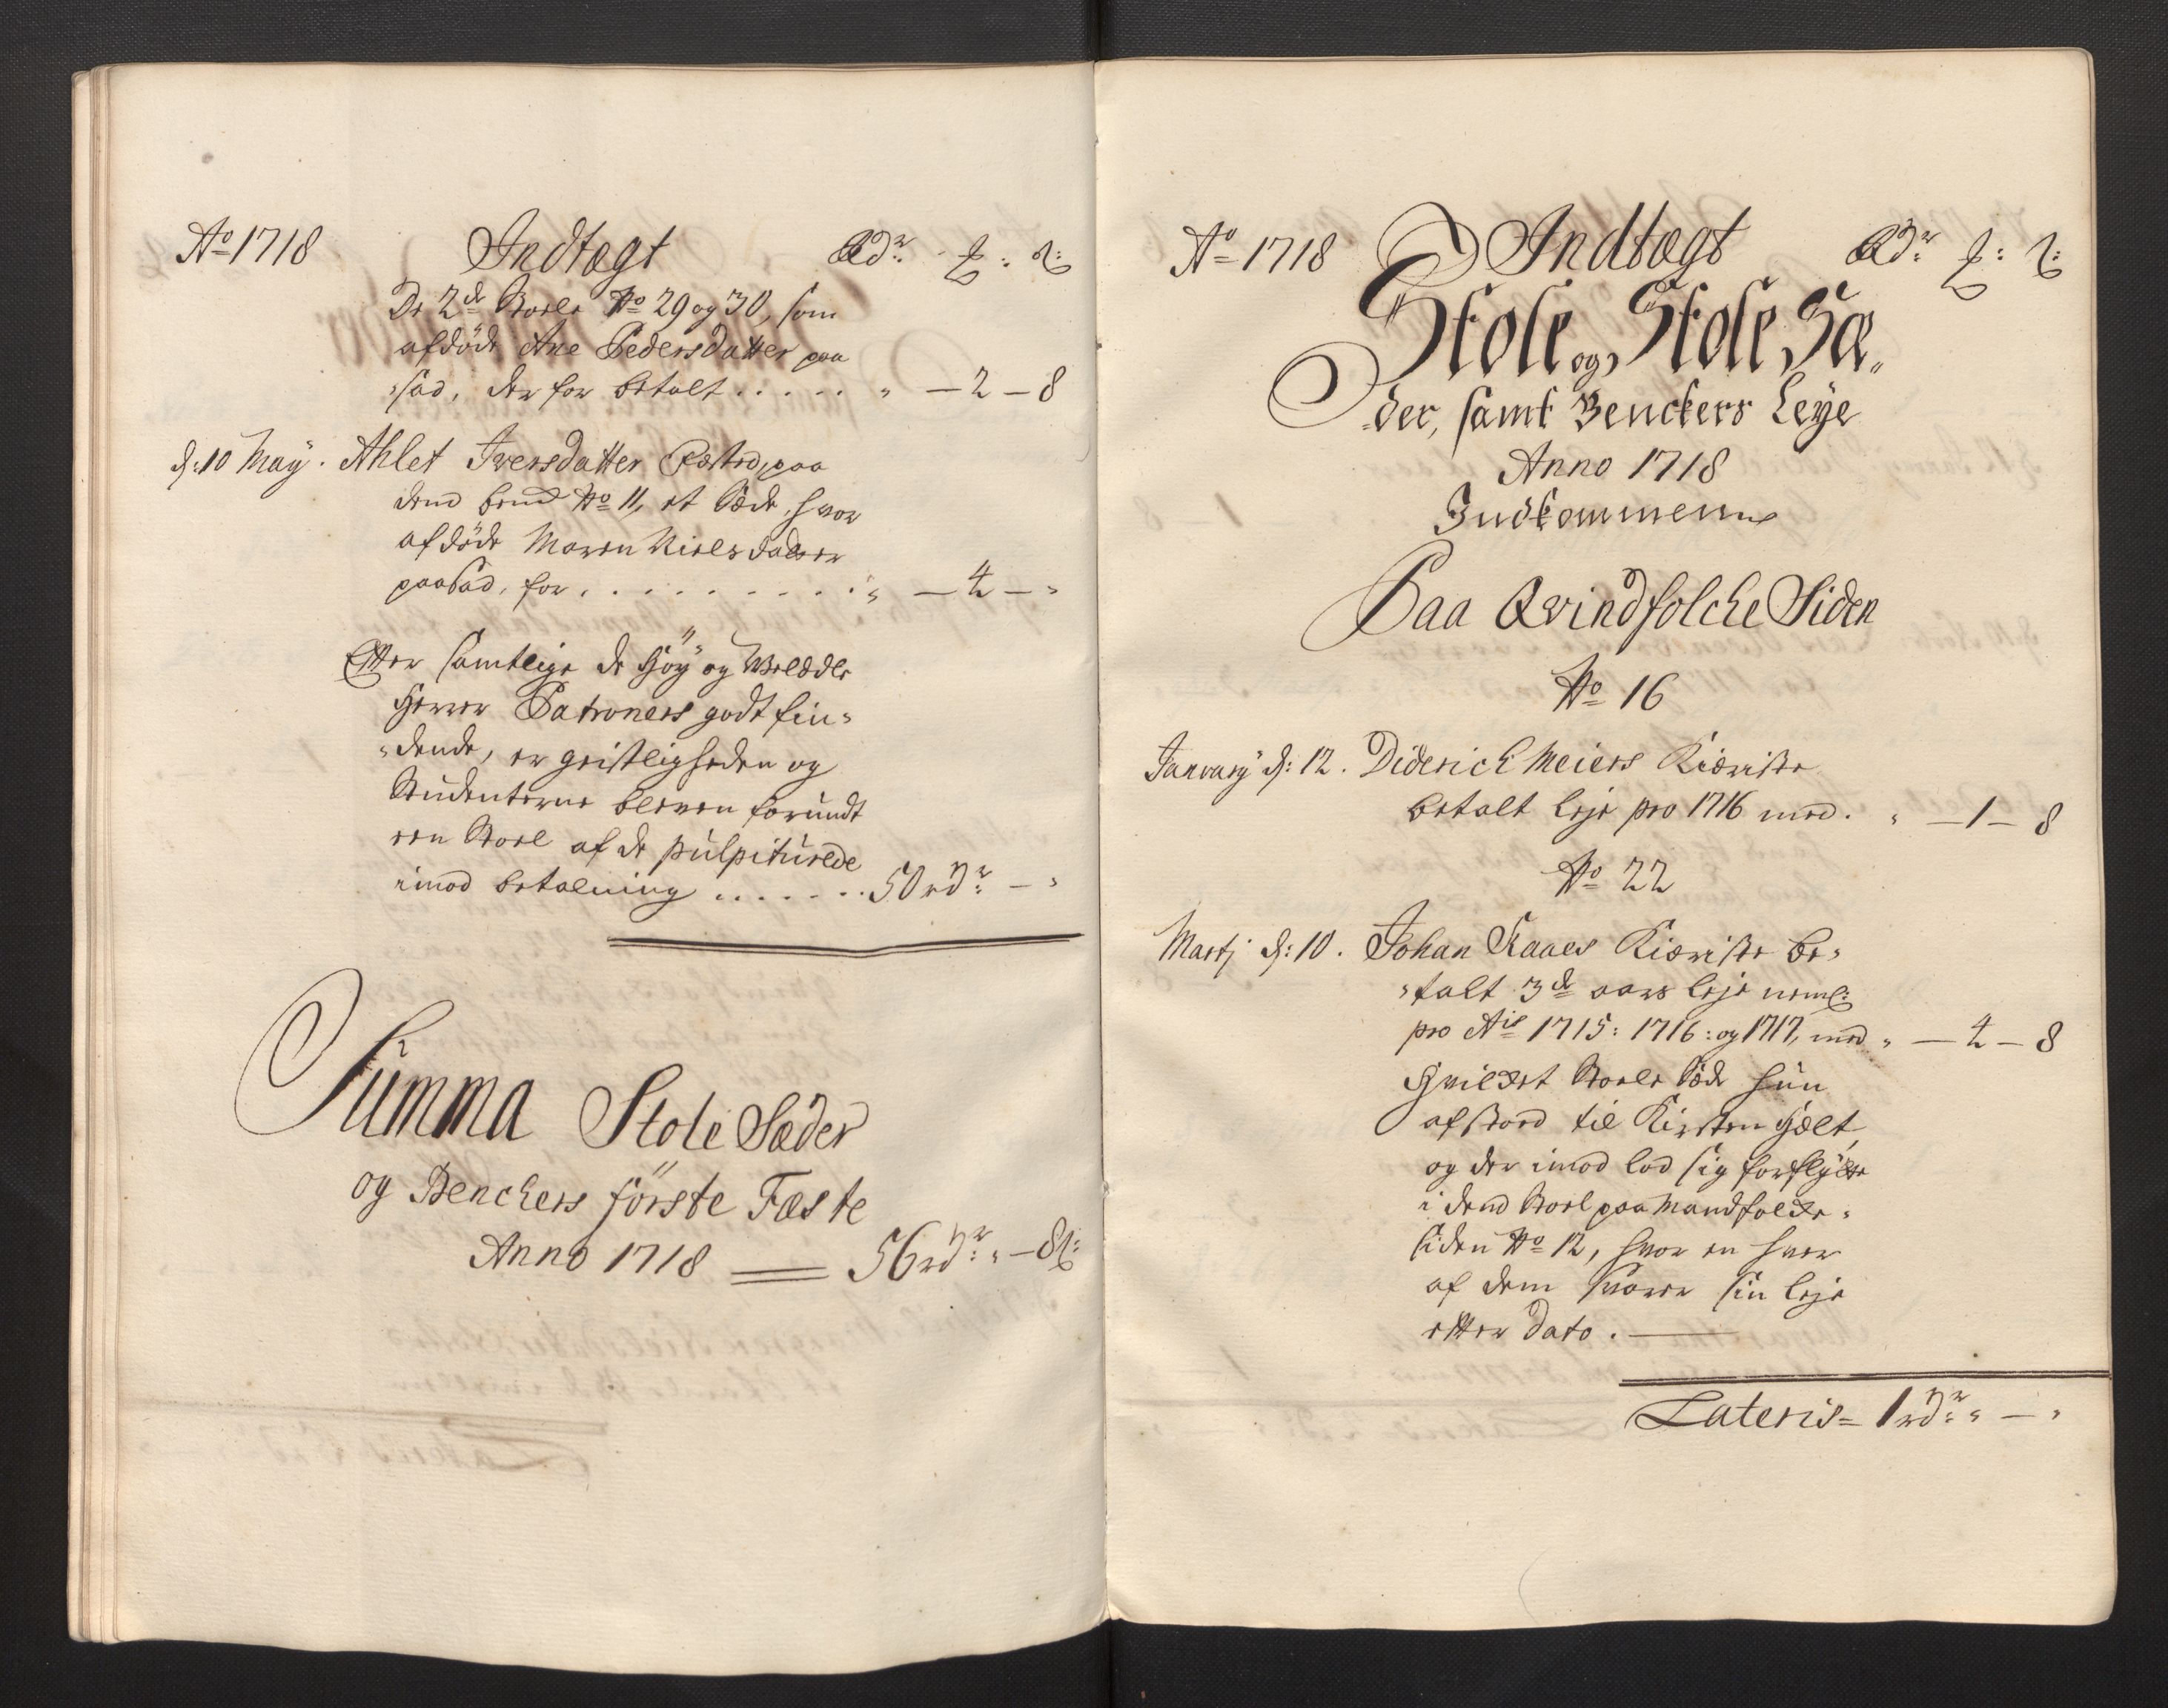 Ao 1718 Indtægt Rdr: ℳ: ß:
De 2de Stoele No 29 og 30, som
afdöde Ane Pedersdatter paa
sad, der for betalt . . . . . " — 2 — 8
d: 10 Maÿ. Ahlet Iversdatter Fæsted, paa
dend benck No 11, et Sæde, hvor
afdöde Maren Nielsdatter
paasad, for . . . . . . . . . " — 4 — "
Efter samtlige de Höÿ og Velædle
Herrer Patroners godt fin-
-dende, er geistligheden og
Studenterne bleven forundt
een Stoel af de pulpiturede
imod betalning . . . . . . . 50 rdr: — "
Summa Stole Sæder
og Benckers förste Fæste
Anno 1718 56 rdr: " — 8ß:
Ao 1718 Indtægt Rdr: ℳ: ß:
Stole og, Stole Sæ-
-der, samt Benckers Leÿe
Anno 1718
Indkommen
Paa Qvindfolche Siden
No 16
Januarÿ d: 12. Diderich Meiers Kiæriste
betalt leje pro 1716 med. " — 1 — 8
No 22
Martj d: 10. Johan Kaaes Kiæriste be-
-talt 3de aars leje neml:
pro Ais 1715: 1716: og 1717, med " — 4 — 8
Hvilcket Stoele Sæde hun
afstoed til Kirsten Hiælt,
og der imod lod sig forflÿtte
i dend Stoel paa Mandfolcke-
siden No 12, hvor en hver
af dem svarer sin leje
efter Dato.
Lateris = 1 rdr: " — "